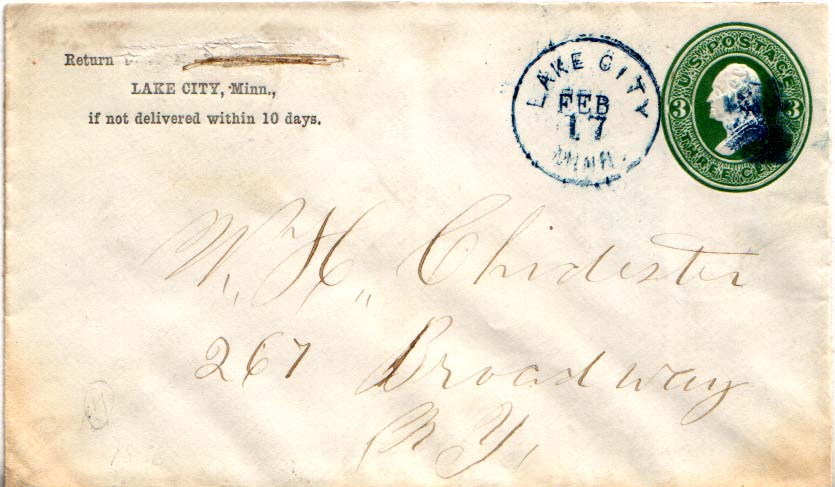 Return
LAKE CITY, Minn.,
if not delivered within 10 days.
LAKE CITY
FEB
17
MINN.
U.S. POSTAGE
3 3
W. H. Chidester
267 Broadway
N Y,